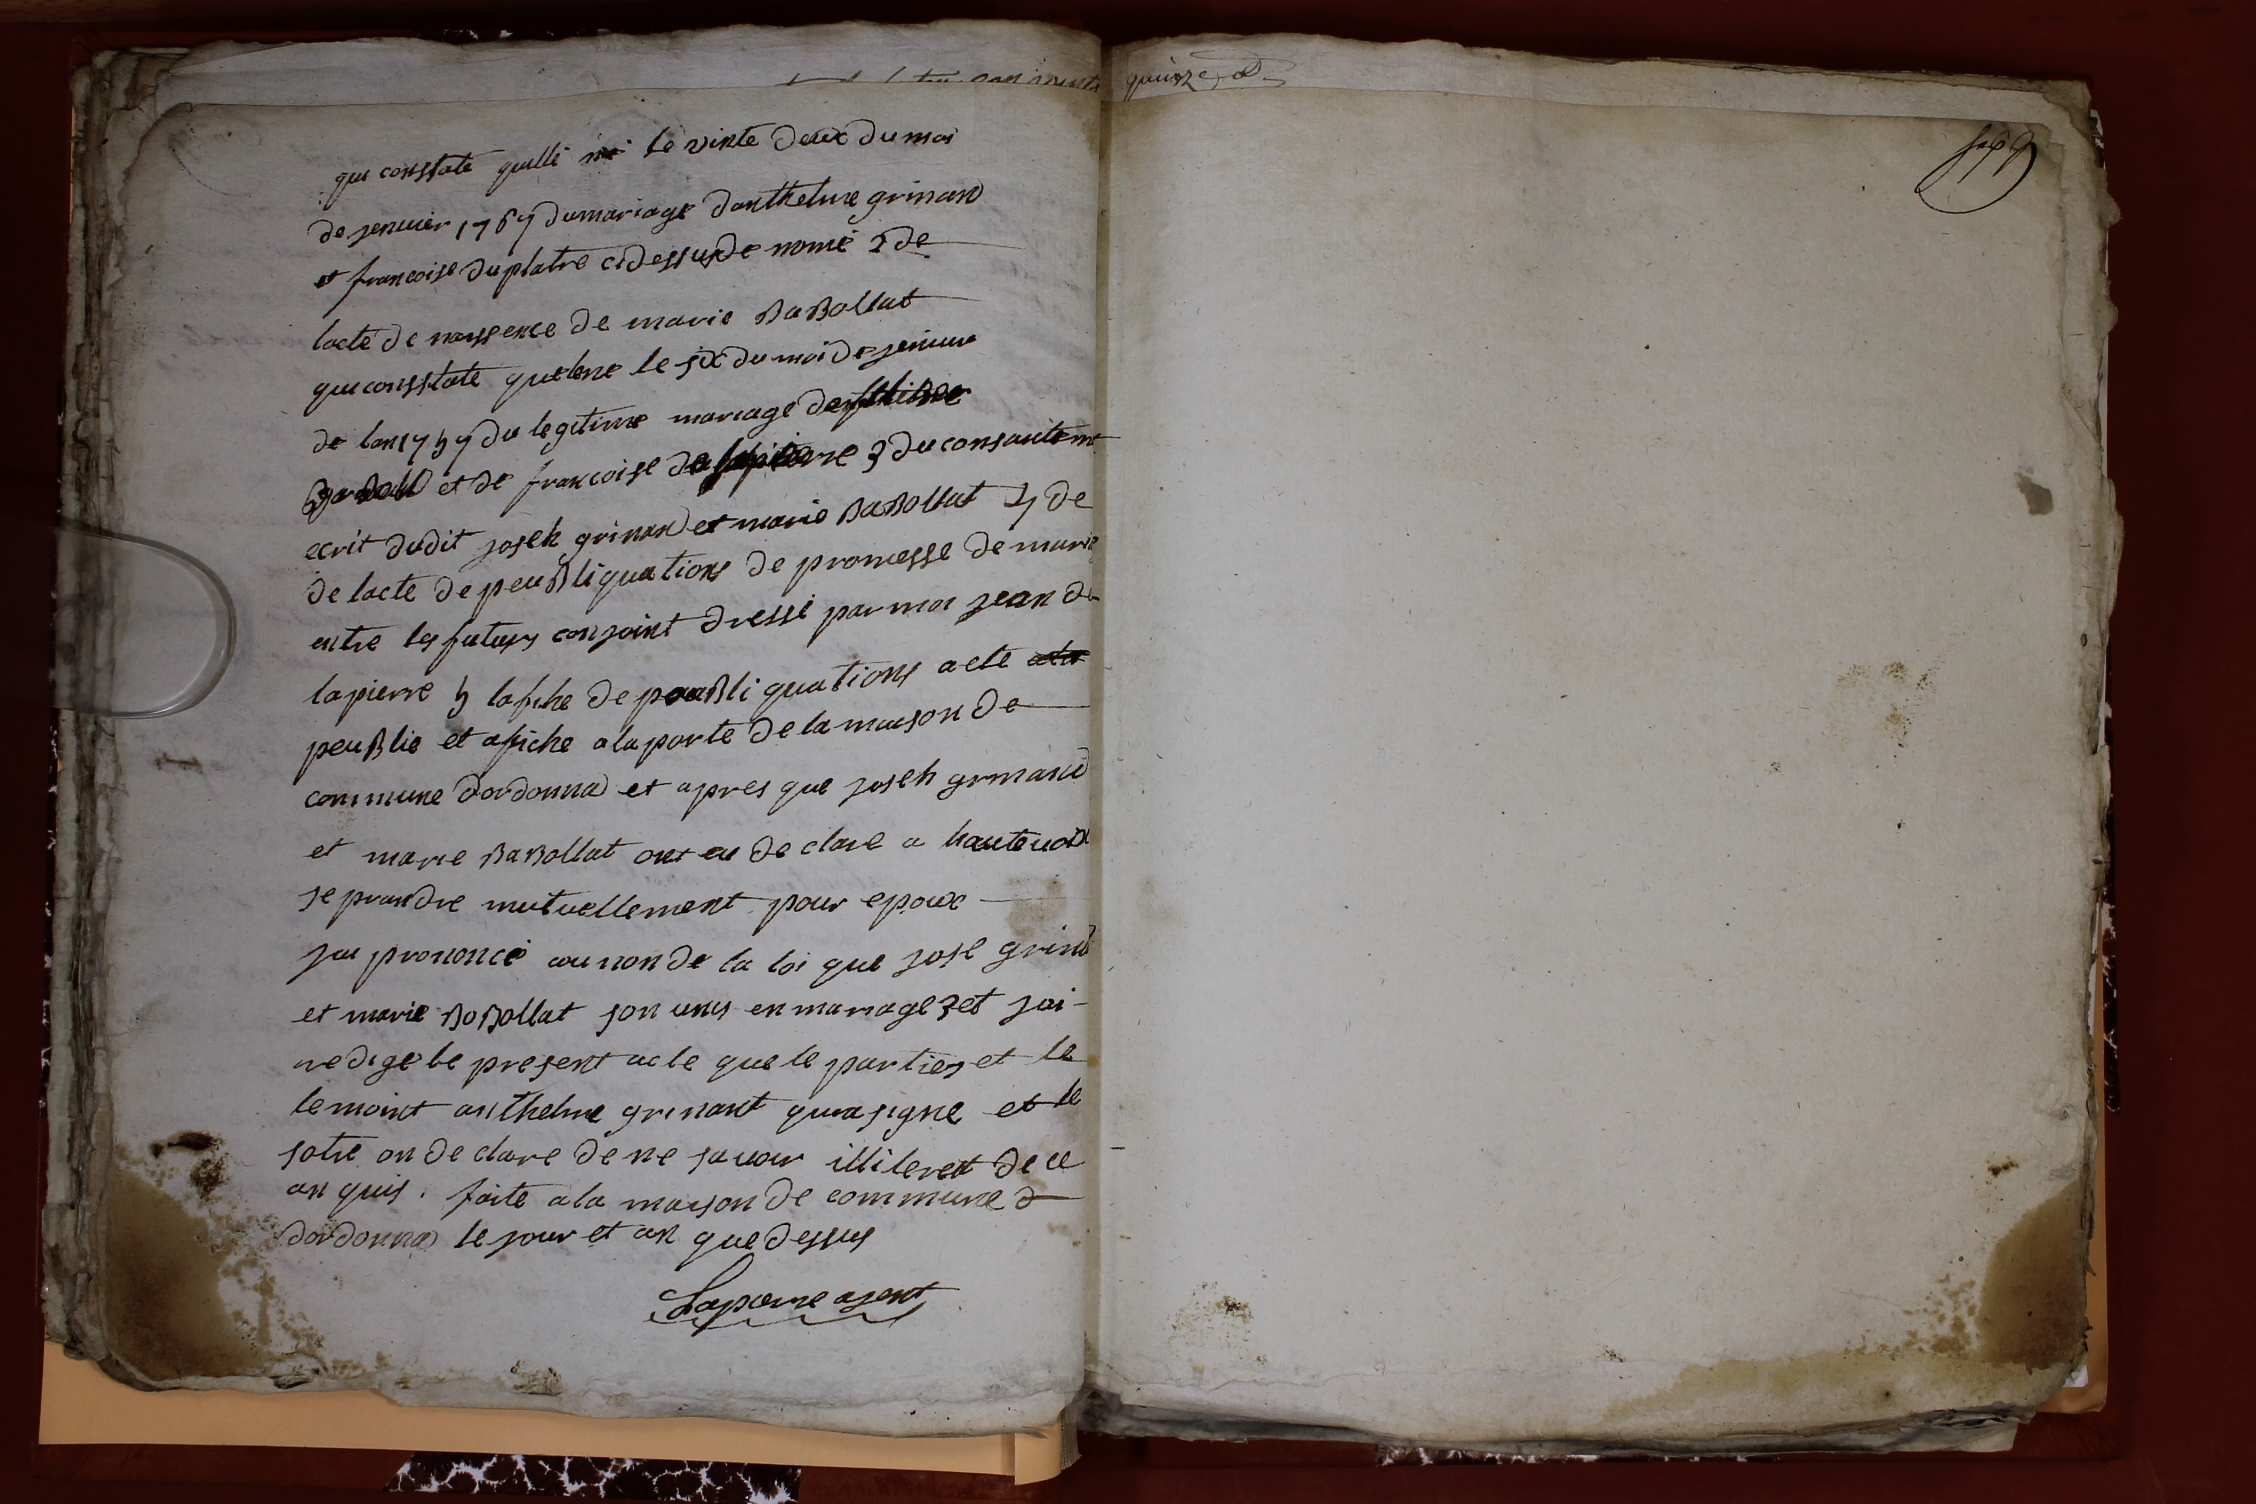 quinze
sept
qui constate quille né le vinte deux du moi
de jenvier 1767 du mariage danthelme grinand
et francoise duplatre cidessus de nomé 2 de
lacte de naissence de marie Babollat
qui consstate quelene le six du moi de jenvie
de lan 1757 du legitime mariage
et de francoise de lapierre 3 du consantemt
ecrit dudit joseh grinand et marie Babollat 4 de
de lacte de peubliquations de promesse de marie
entre les futurs conjoint dressé par moi jean de
lapierre 5 lafiche de peubliquations acte
peublie et afiche a la porte de la maison de
commune dordonna et apres que joseh grinand
et marie Babollat ont eu de clare a haute voix
se prandre mutuellement pour epoux
jai prononcé au non de la loi que jose grind
et marie Bobollat son unis en mariage et jai
redigé le present acte que le parties et le
temoint anthelme grinant qui a signe et le
sotre on de clare de ne savoir illileret de ce
an quis. faite a la maison de commune d
dordonna le jour et an que dessus
Lapierre agent